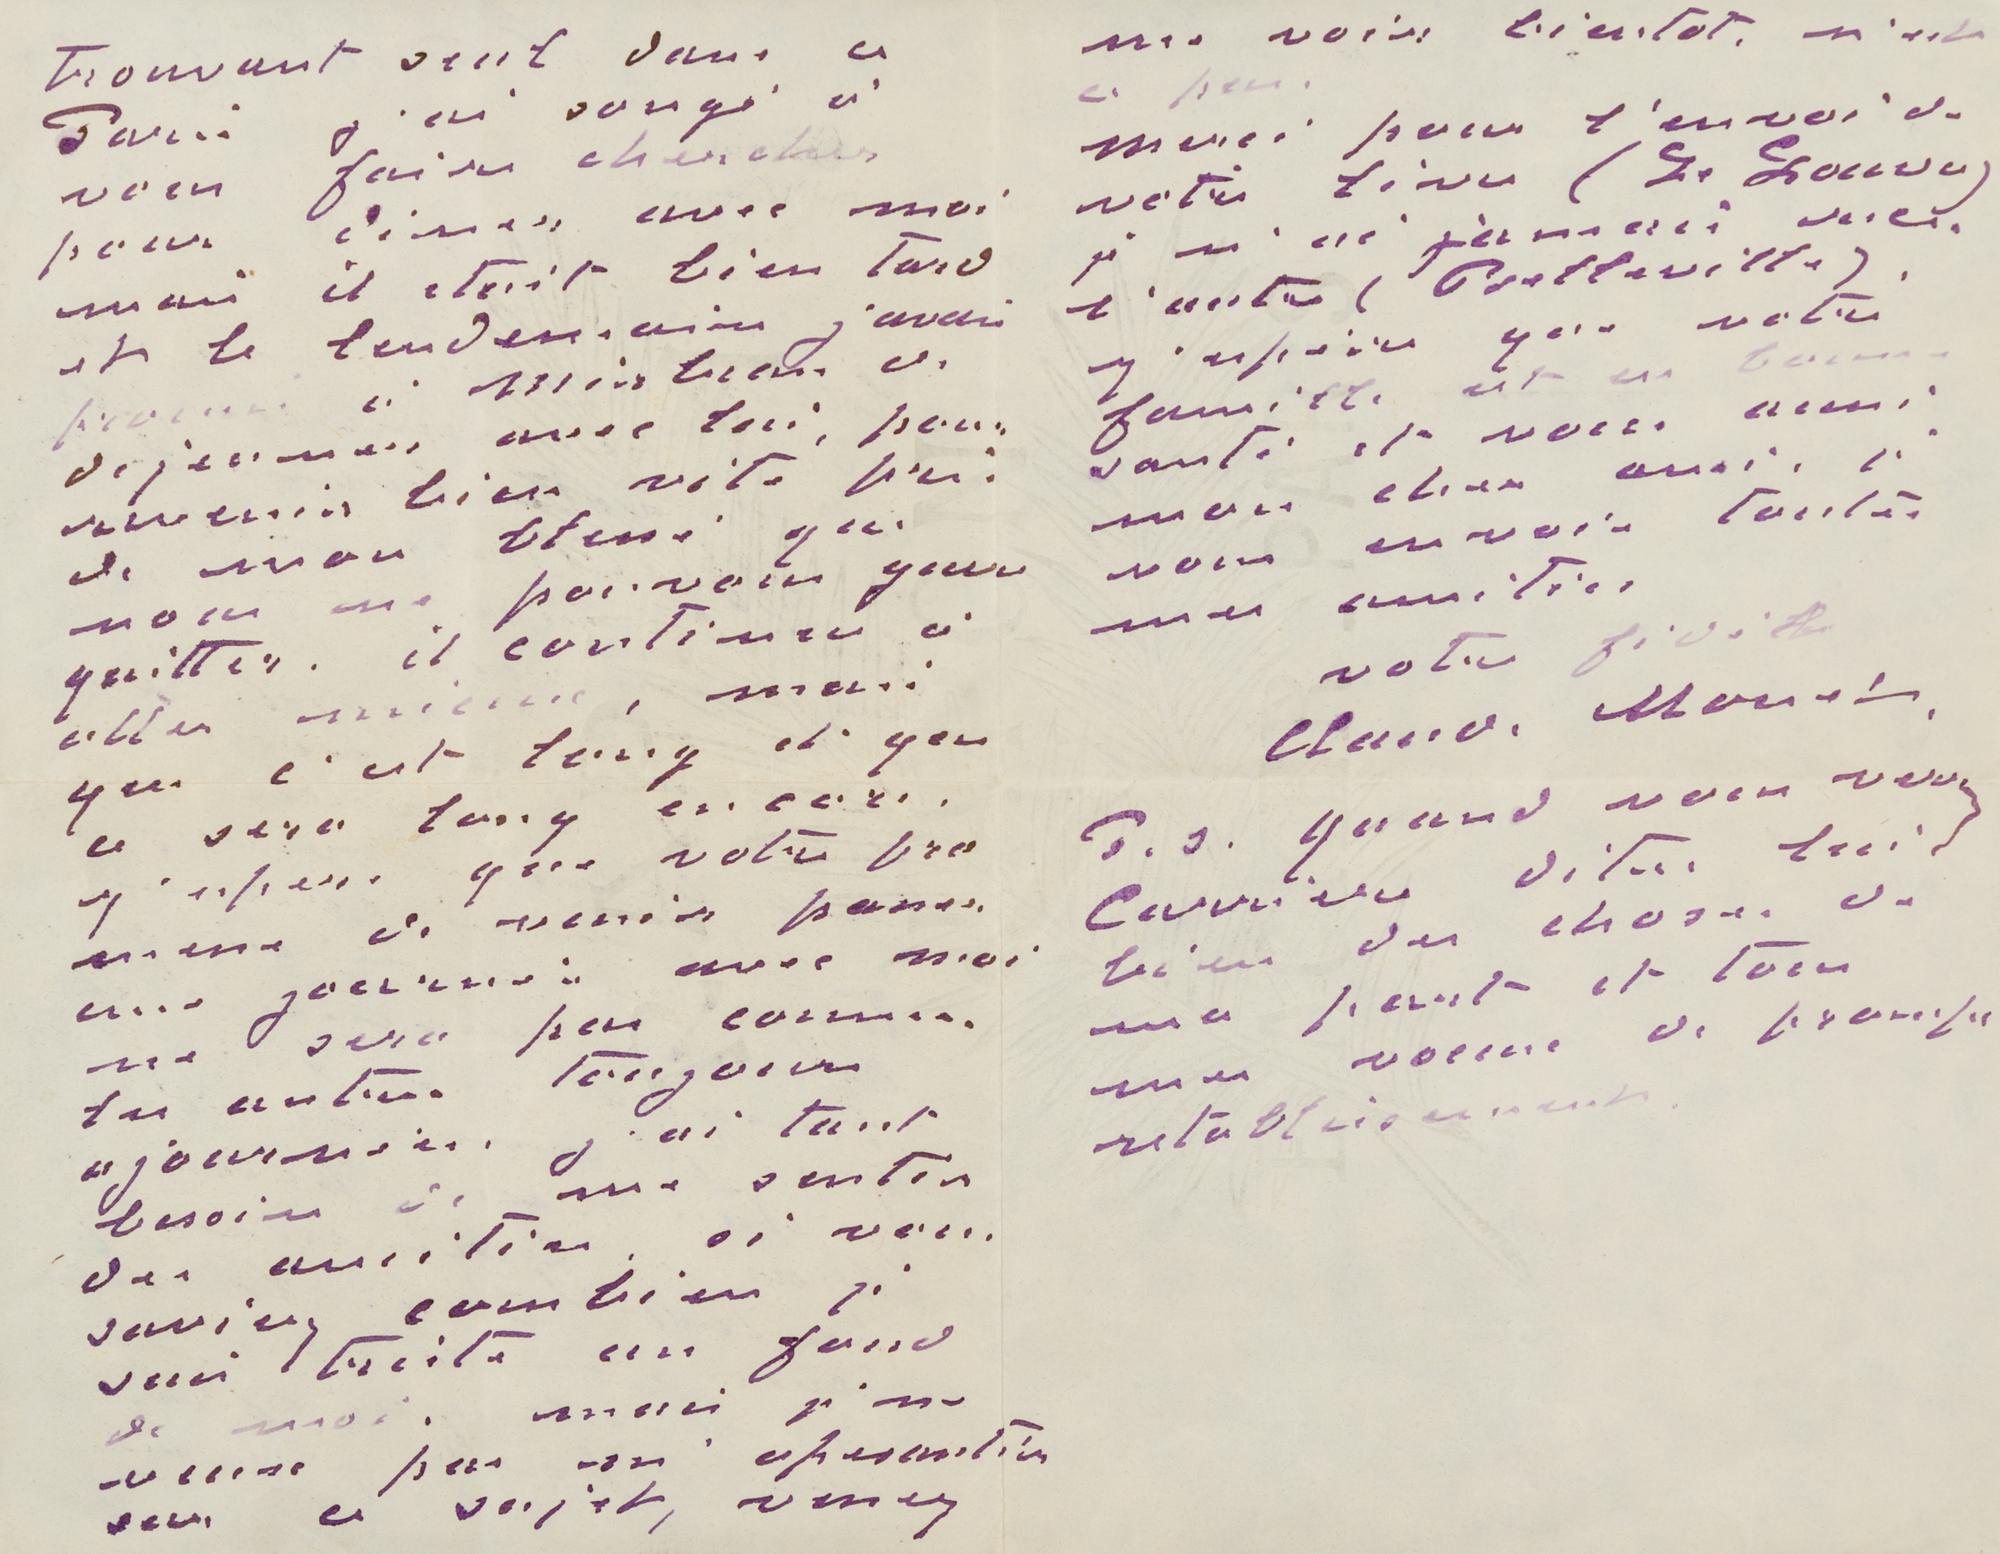 trouvant seul dans ce
Paris j'ai songé à
vous faire chercher
pour diner avec moi
mais il était bien tard
et le lendemain j'avais
promis à Mirbeau de
dejeuner avec lui, pour
revenir bien vite près
de mon blessé que
nous ne pouvons guère
quitter. il continue à
aller mieux, mais
que c'est long et que
ce sera long encore.
j'espère que votre pro
messe de venir passer
une journée avec moi
ne sera pas comme
les autres toujours
ajournée. j'ai tant
besoin de me sentir
des amitiés. si vous
saviez combien je
suis triste au fond
de moi. mais je ne
veux pas m'apesantir
sur ce sujet, venez
me voir bientôt. n'est
ce pas.
merci pour l'envoi de
votre livre (Le Louvre)
je n'ai jamais reçu
l'autre (Belleville).
j'espère que votre
famille est en bonne
santé et vous aussi
mon cher ami. je
vous envoie toutes
mes amitiés
votre fidèle
Claude Monet.
P. S. Quand vous verrez
Carrière dites lui
bien des choses de
ma part et tous
mes voeux de prompt
retablissement.